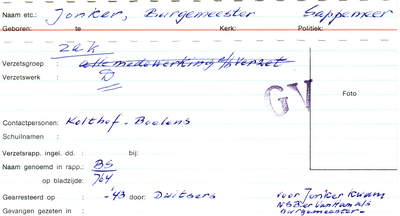 Naam etc. Jonker, Burgemeester Sappemeer
Geboren: te Kerk: Politiek:
zak
Verzetsgroep : alle medewerking a/h verzet
Verzetswerk : D
GV
Foto
Contactpersonen: Kolthof - Boelens
Schuilnamen :
Verzetsrapp. ingel. dd. : bij:
Naam genoemd in rapp.: BS
op bladzijde: 764
Gearresteerd op : -'43 door: Duitsers
Gevangen gezeten in :
voor Jonker kwam
NSBer Van Ham als
burgemeester-